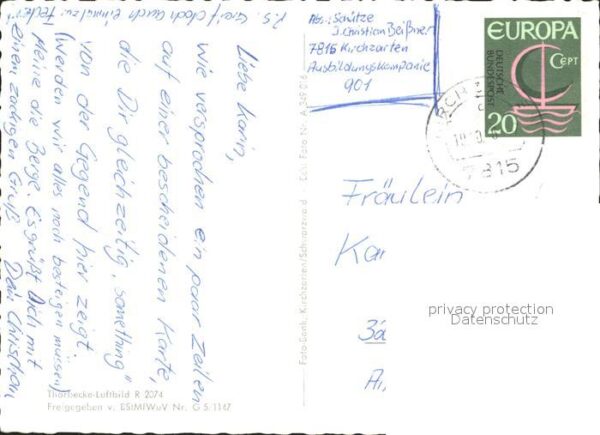 Liebe Karin,
wie versprochen ein paar Zeilen
auf einer bescheidenen Karte,
die Dir gleichzeitig „something"
von der Gegend hier zeigt.
(werden wir alles noch besteigen müssen)
Meine die Berge. Es grüßt Dich mit
einen zackigen Gruß Dein Christian
P.S. Greif doch auch einmal zur Feder!
Abs.: Schütze
J. Christian Beißner
7815 Kirchzarten
Ausbildungskompanie
901
EUROPA
CEPT
DEUTSCHE
BUNDESPOST
20
7815
Fräulein
Ka
privacy protection
Datenschutz
Foto-Bank, Kirchzarten/Schwarzwald
Thorbecke-Luftbild R 2074
Freigegeben v. BStMfWuV Nr. G 5/1147